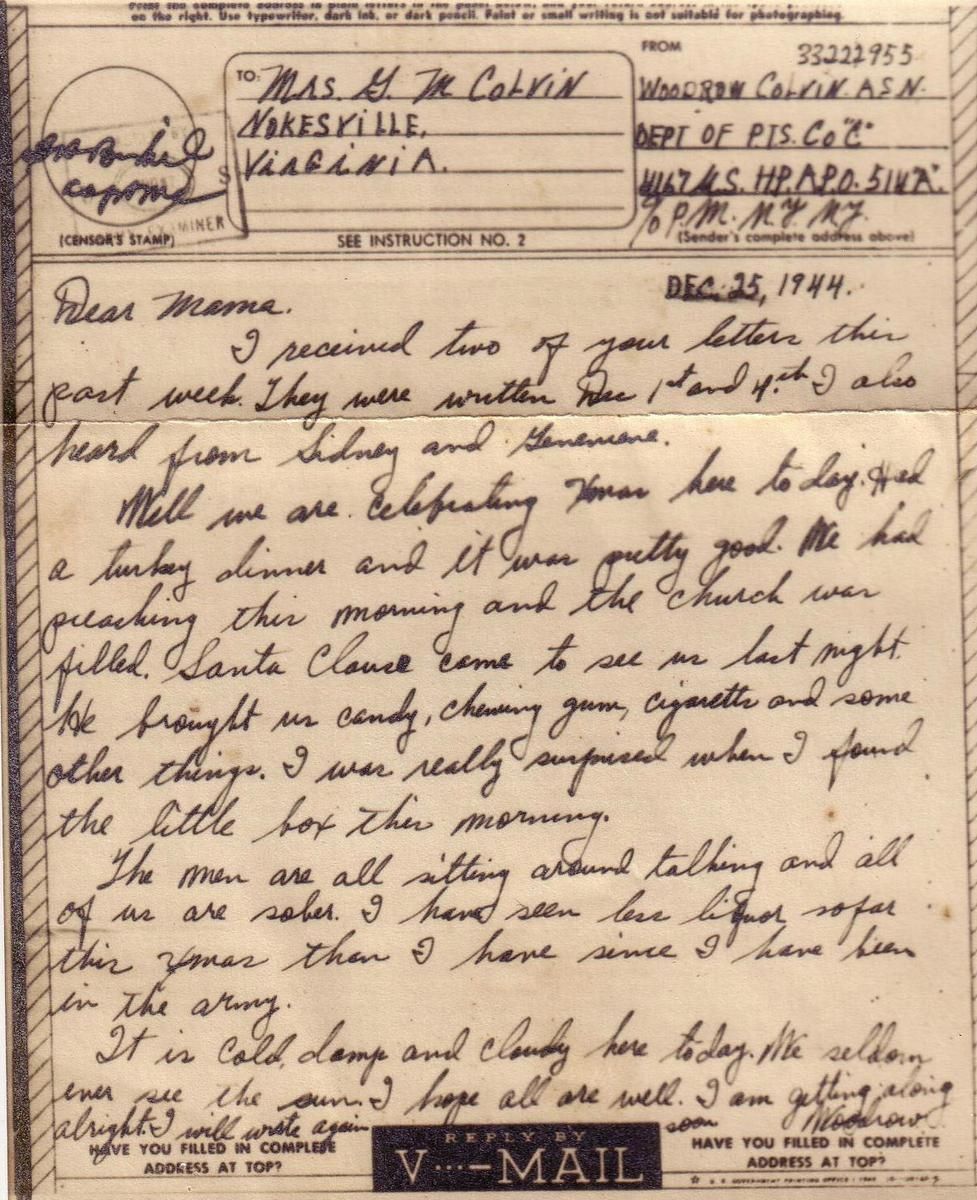 on the right. Use typewriter, dark ink, or dark pencil. Faint or small writing is not suitable for photographing.
TO:
Mrs. G. M Colvin
Nokesville,
Virginia.
FROM
33222955
Woodrow Colvin. ASN.
Dept of Pts. Co "C"
4167 U.S. HP. A.P.O. 514A.
% P.M. N.Y. N.Y.
(Sender's complete address above)
EXAMINER
(CENSOR'S STAMP)
SEE INSTRUCTION NO. 2
Dec. 25, 1944.
Dear Mama.
I received two of your letters this
past week. They were written Dec 1st and 4th. I also
heard from Sidney and
Well we are celebrating Xmas here today. Had
a turkey dinner and it was pretty good. We had
preaching this morning and the church was
filled. Santa Clause came to see us last night.
He brought us candy, chewing gum, cigaretts and some
other things. I was really surprised when I found
the little box this morning.
The men are all sitting around talking and all
of us are sober. I have seen less liquor sofar
this Xmas than I have since I have been
in the army.
It is cold, damp and cloudy here today. We seldom
ever see the sun. I hope all are well. I am getting along
alright. I will write again soon Woodrow.
HAVE YOU FILLED IN COMPLETE
ADDRESS AT TOP?
REPLY BY
V···—MAIL
HAVE YOU FILLED IN COMPLETE
ADDRESS AT TOP?